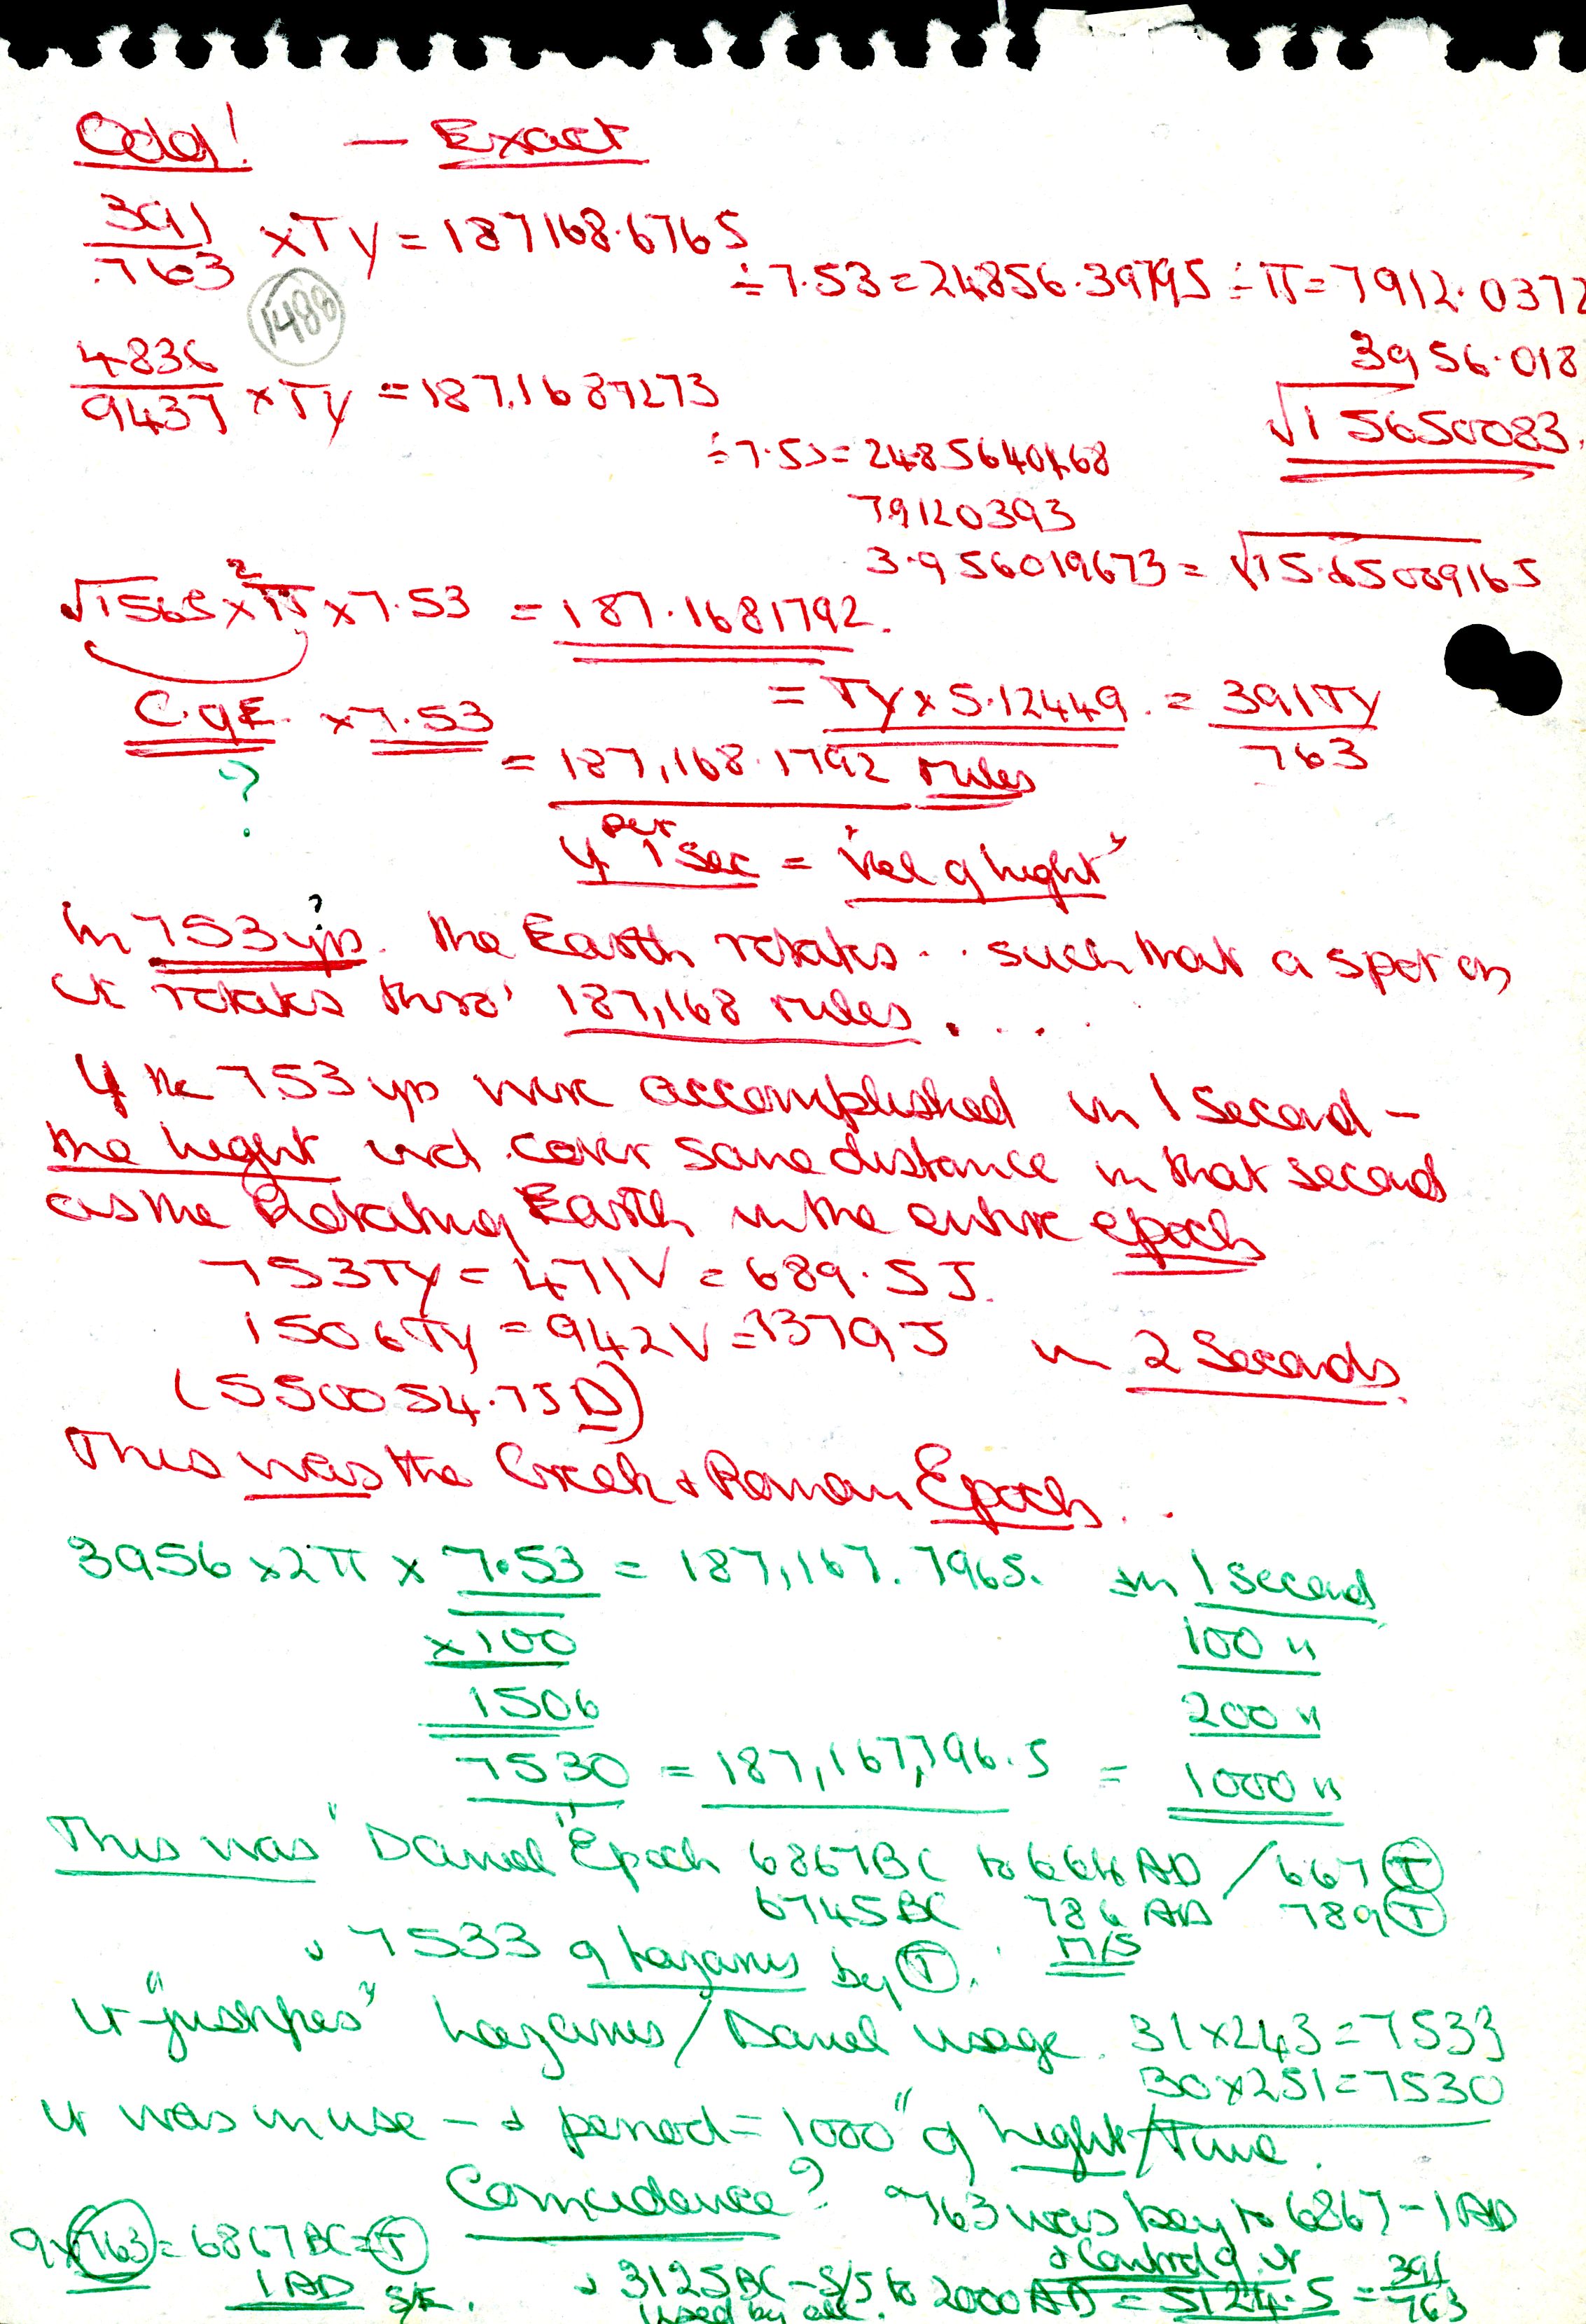 Odd! — Exact
391/.763 × Ty = 187168.6765
÷ 7.53 = 24856.39795 ÷ π = 7912.0372
1488
3956.018
4836/9437 × Ty = 187.1687273
√15650083.
÷ 7.53 = 2485640468
79120393
3.956019673 = √15.65009165
√1565 × 2π × 7.53 = 187.1681792.
= Ty × 5.12449 = 391Ty/763
C.of E. × 7.53
= 187,168.1792 miles
?
if per 1 sec = "Vel of light"
In 753 yrs. ? the Earth rotates .. such that a spot on
it rotates thro' 187,168 miles . . . .
If the 753 yrs were accomplished in 1 second –
the light wd cover same distance in that second
as the Rotating Earth in the entire epoch
753Ty = 471V = 689.5J.
1506Ty = 942V = 1379J in 2 Seconds.
(550054.75D)
This was the Greek & Roman Epoch . .
3956 × 2π × 7.53 = 187,167.7965. in 1 second
×100 100 "
1506 200 "
7530 = 187,167,796.5 = 1000 "
This was "Daniel" Epoch 6867BC to 666 AD / 667 (T)
6745BC 786 AD 789 (T)
7533 of Lazarus by (T). M/S
It "justifies" Lazarus/Daniel usage. 31×243=7533
30×251=7530
It was in use – & period = 1000" of Light/Time.
Coincidence? 763 was key to 6867 – 1AD
9×763 = 6867BC = (T) & Control of it
1AD S/E. 3125BC – S/S to 2000AD = 5124.5 = 391/763
used by all.